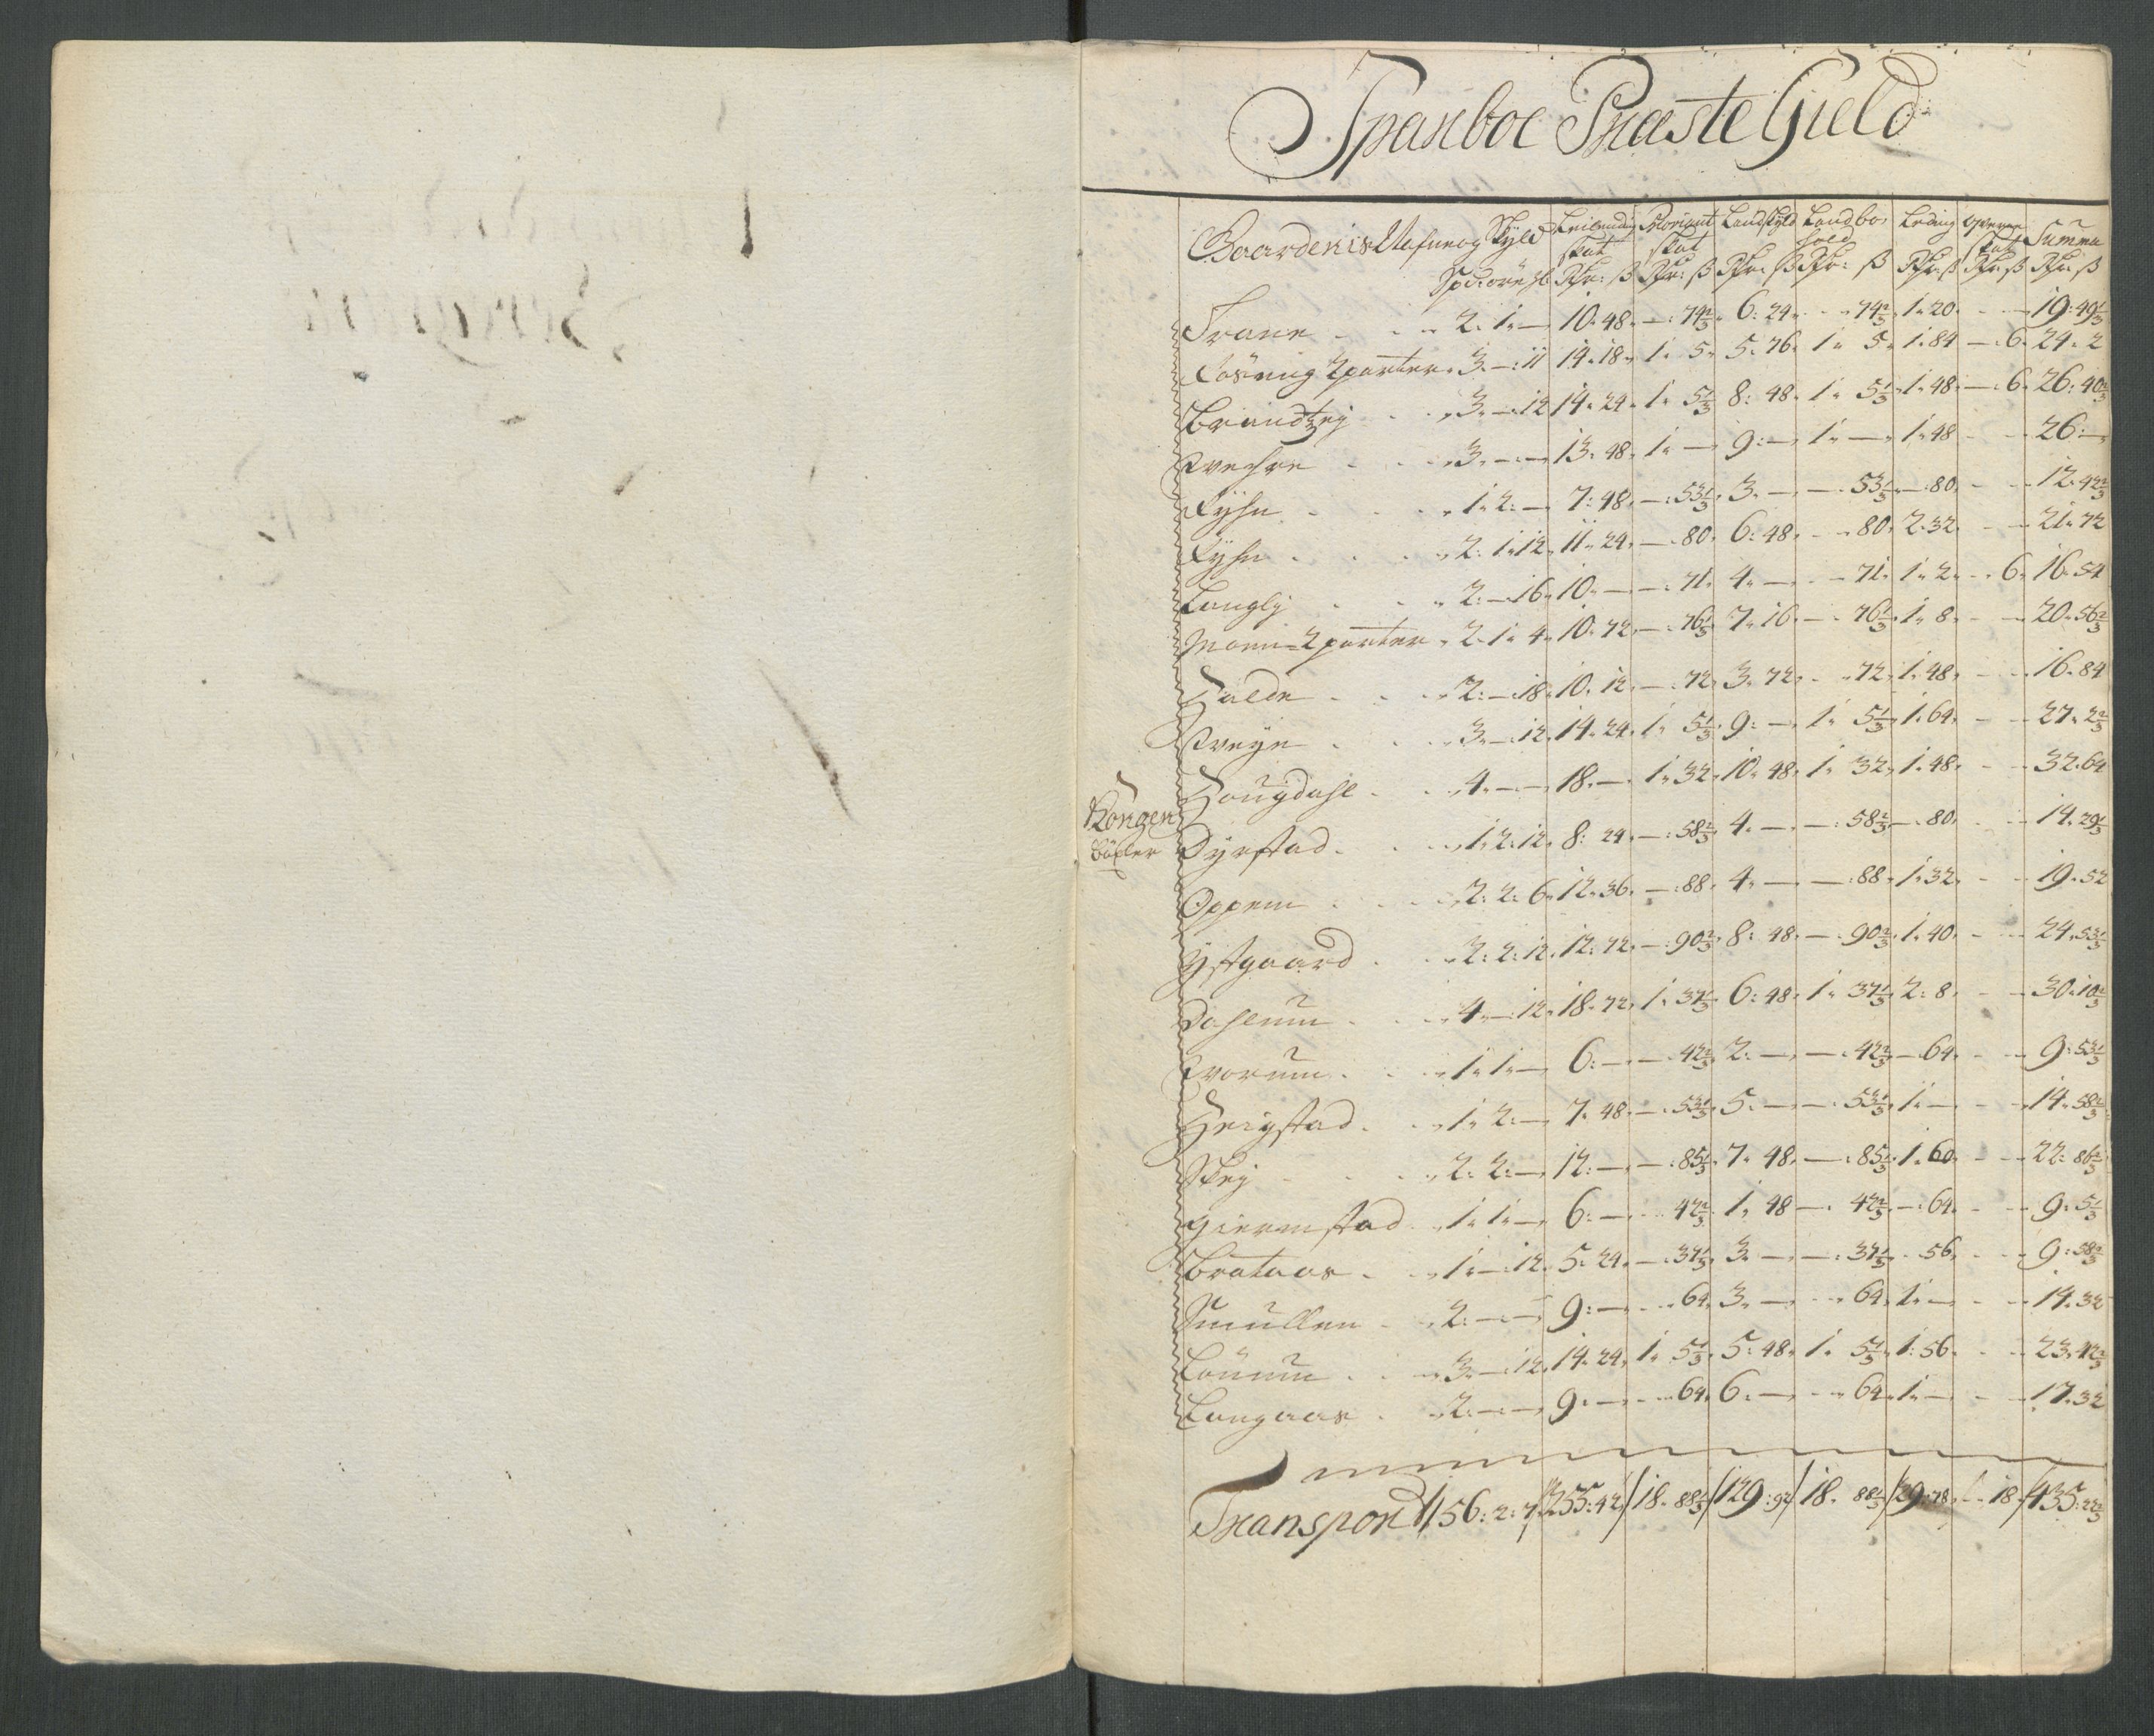 Sparboe Præste Gield
Gaardenis Nafne og Skyld Leilending skat Proviant skat Landskyld Landbo hold Leding Qværn skat Summa
Spd: öre ℔ Rdr: ß Rdr: ß Rdr: ß Rdr: ß Rdr: ß Rdr: ß Rdr: ß
Trane . . 2: 1 — 10. 48. —: 74⅔. 6: 24. — 74⅔. 1. 20. — 19: 49⅓
Lösning 2 parter. 3. —: 11 14. 18. 1. 5. 5. 76. 1. 5. 1. 84 —: 6. 24. 2
Brandzeg . . 3. —. 12 14. 24. 1. 5⅓ 8: 48. 1. 5⅓. 1. 48. —: 6. 26: 40⅔
. . 3. — — 13. 48. 1. — 9: — 1. — 1. 48 — 26: —
Lyhn . . 1. 2: — 7: 48. —: 53⅓. 3. — —. 53⅓. —: 80. — 12. 42⅔
Lyhn . . 2: 1. 12. 11. 24. —: 80. 6: 48. — 80. 2. 32. — 21. 72
Langly . . 2: —. 16. 10. — —: 71. 4. — — 71. 1. 2. — 6. 16. 54
2 parter. 2. 1. 4. 10. 72. —: 76⅓. 7. 16. —. 76⅓. 1. 8. — 20. 56⅔
Halde . . 2: —. 18. 10. 12. —: 72. 3. 72. — 72. 1. 48. — 16. 84
. . 3. —. 12. 14. 24. 1. 5⅓. 9: — 1. 5⅓. 1. 64. — 27. 2⅔
Hougdahl . . 4. — — 18. — 1. 32. 10. 48. 1. 32. 1. 48. — 32. 64
Kongen
Dyrstad . . 1. 2. 12. 8: 24. —: 58⅔. 4. — —: 58⅔. —: 80. — 14. 29⅓
Oppem . . 2: 2: 6. 12. 36. —: 88. 4. — —: 88. 1. 32. — 19. 52
Ystgaard . . 2: 2: 12. 12: 72. —: 90⅔. 8: 48. —. 90⅔. 1. 40. — 24. 53⅓
Dahlum . . 4. —: 12. 18. 72. 1. 37⅓. 6: 48. 1. 37⅓. 2: 8. — 30. 10⅔
. . 1. 1. — 6: — —: 42⅔. 2: — —. 42⅔. — 64. — 9: 53⅓
Hegstad . . 1. 2: — 7. 48. —: 53⅓. 5. — —: 53⅓. 1. — — 14. 58⅔
Skey . . 2: 2: — 12: — —: 85⅓. 7. 48. —: 85⅓. 1. 60. — 22: 86⅔
Giermstad . . 1. 1. — 6: — — 42⅔. 1. 48 —. 42⅔. —: 64. — 9: 5⅓
Brataas . . 1. —. 12. 5. 24. —: 37⅓. 3. — —: 37⅓. . 56. — 9: 58⅔
Smullen . . 2: — — 9: — — 64. 3. — — 64. 1. — — 14. 32
Lönum . . 3. —. 12. 14. 24. 1. 5⅓. 5: 48. 1. 5⅓. 1: 56. — 23. 42⅔
Langaas . . 2: — — 9. — — 64. 6: — — 64. 1. — — 17. 32
Transport 56: 2: 7 255: 42 18. 88⅓ 129: 92 18. 88⅓ 29: 78 — 18 435: 22⅔